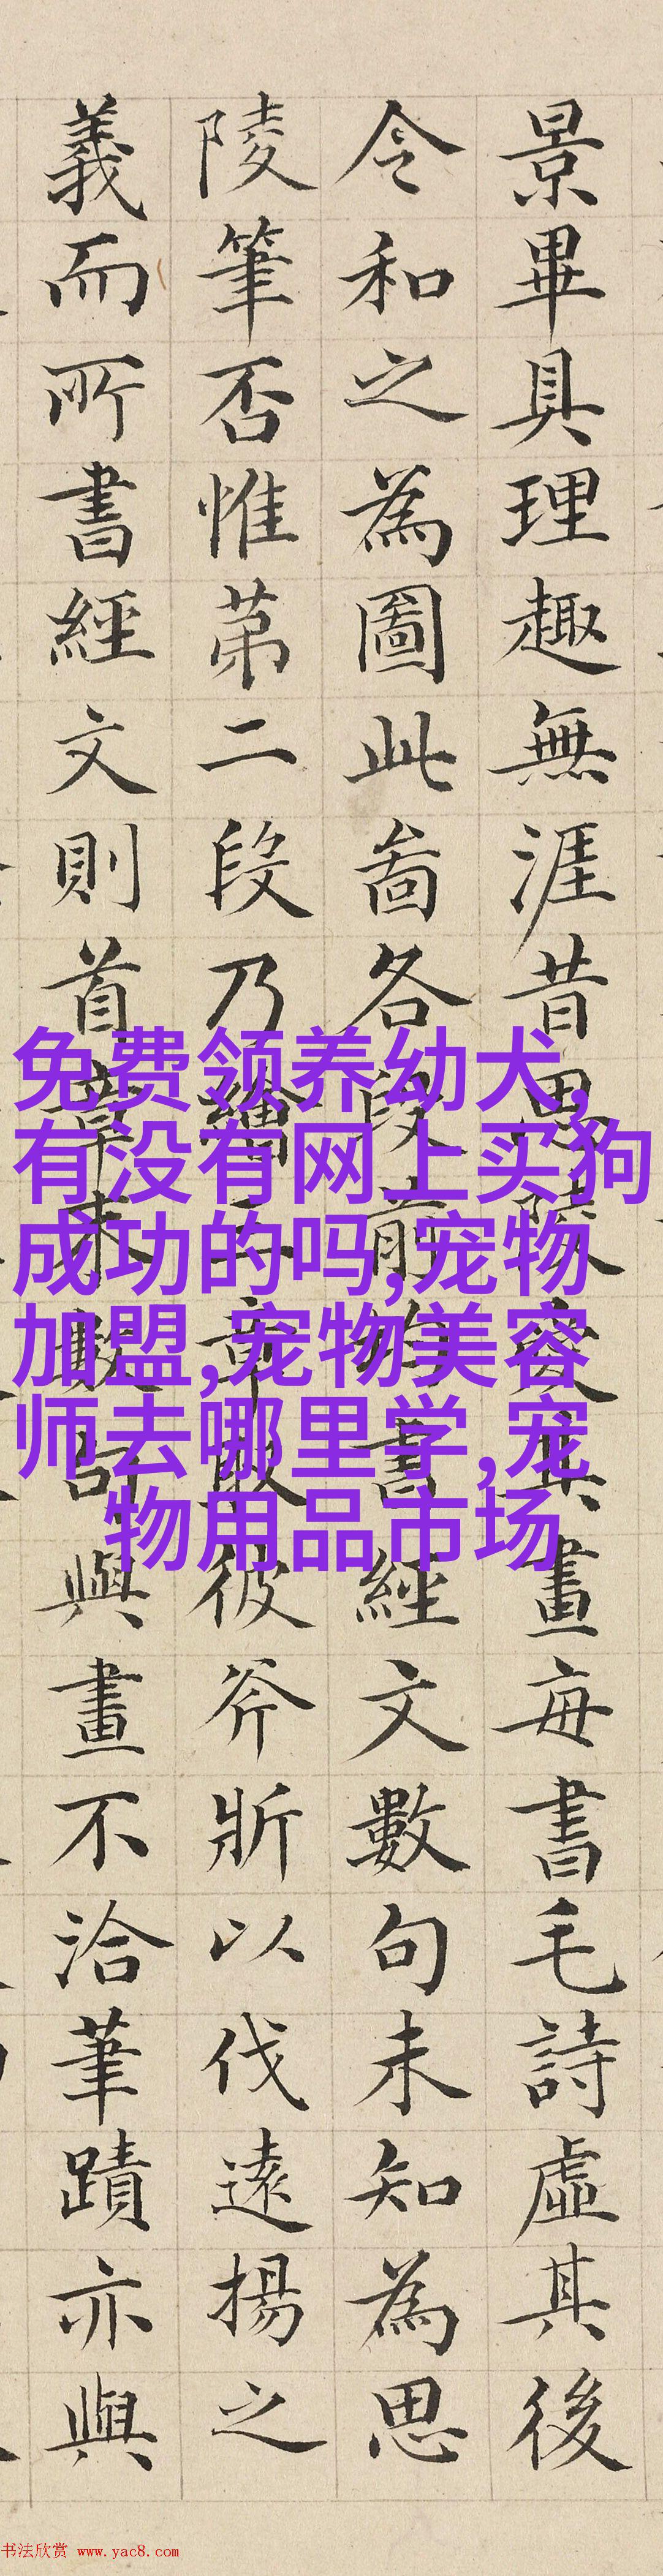 景畢具理趣無涯昔思陵愛其畫每書毛詩虛其後
令和之為圖此啚各段前均書經文數句未知為思
陵筆否惟第二段乃繪五章取彼斧斨以伐遠揚之
義而所書經文則首章末數與畫不洽筆蹟亦與
免费领养幼犬,
有没有网上买狗
成功的吗,宠物
加盟,宠物美容
师去哪里学,宠
物用品市场
书法欣赏 www.yac8.com